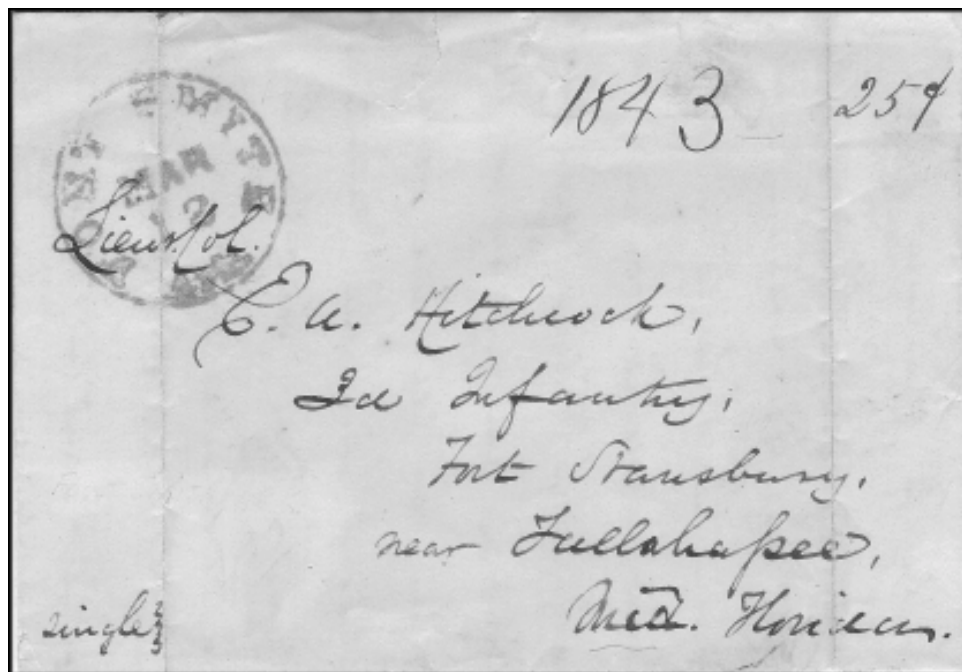 1843 25¢
FORT SMYTE
MAR
12
Lieut. Col.
E. A. Hitchcock,
3d Infantry,
Fort Stansbury,
near Tallahassee,
Mid. Florida.
single